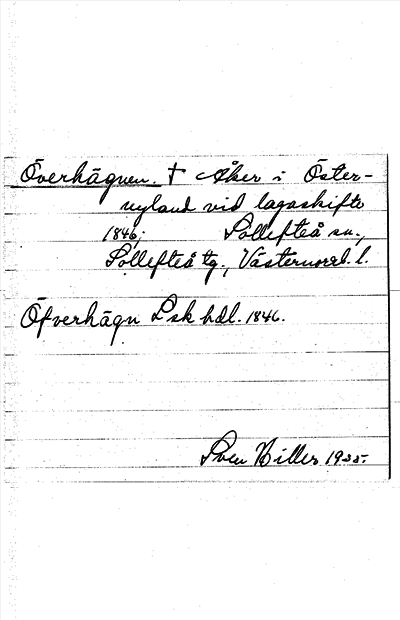 Överhägnen. † Åker i Öster-
nyland vid lagaskifte
1846; Sollefteå sn.,
Sollefteå tg., Västernorrl. l.
Öfverhägn Lsk hdl. 1846.
Sven Hiller 1935